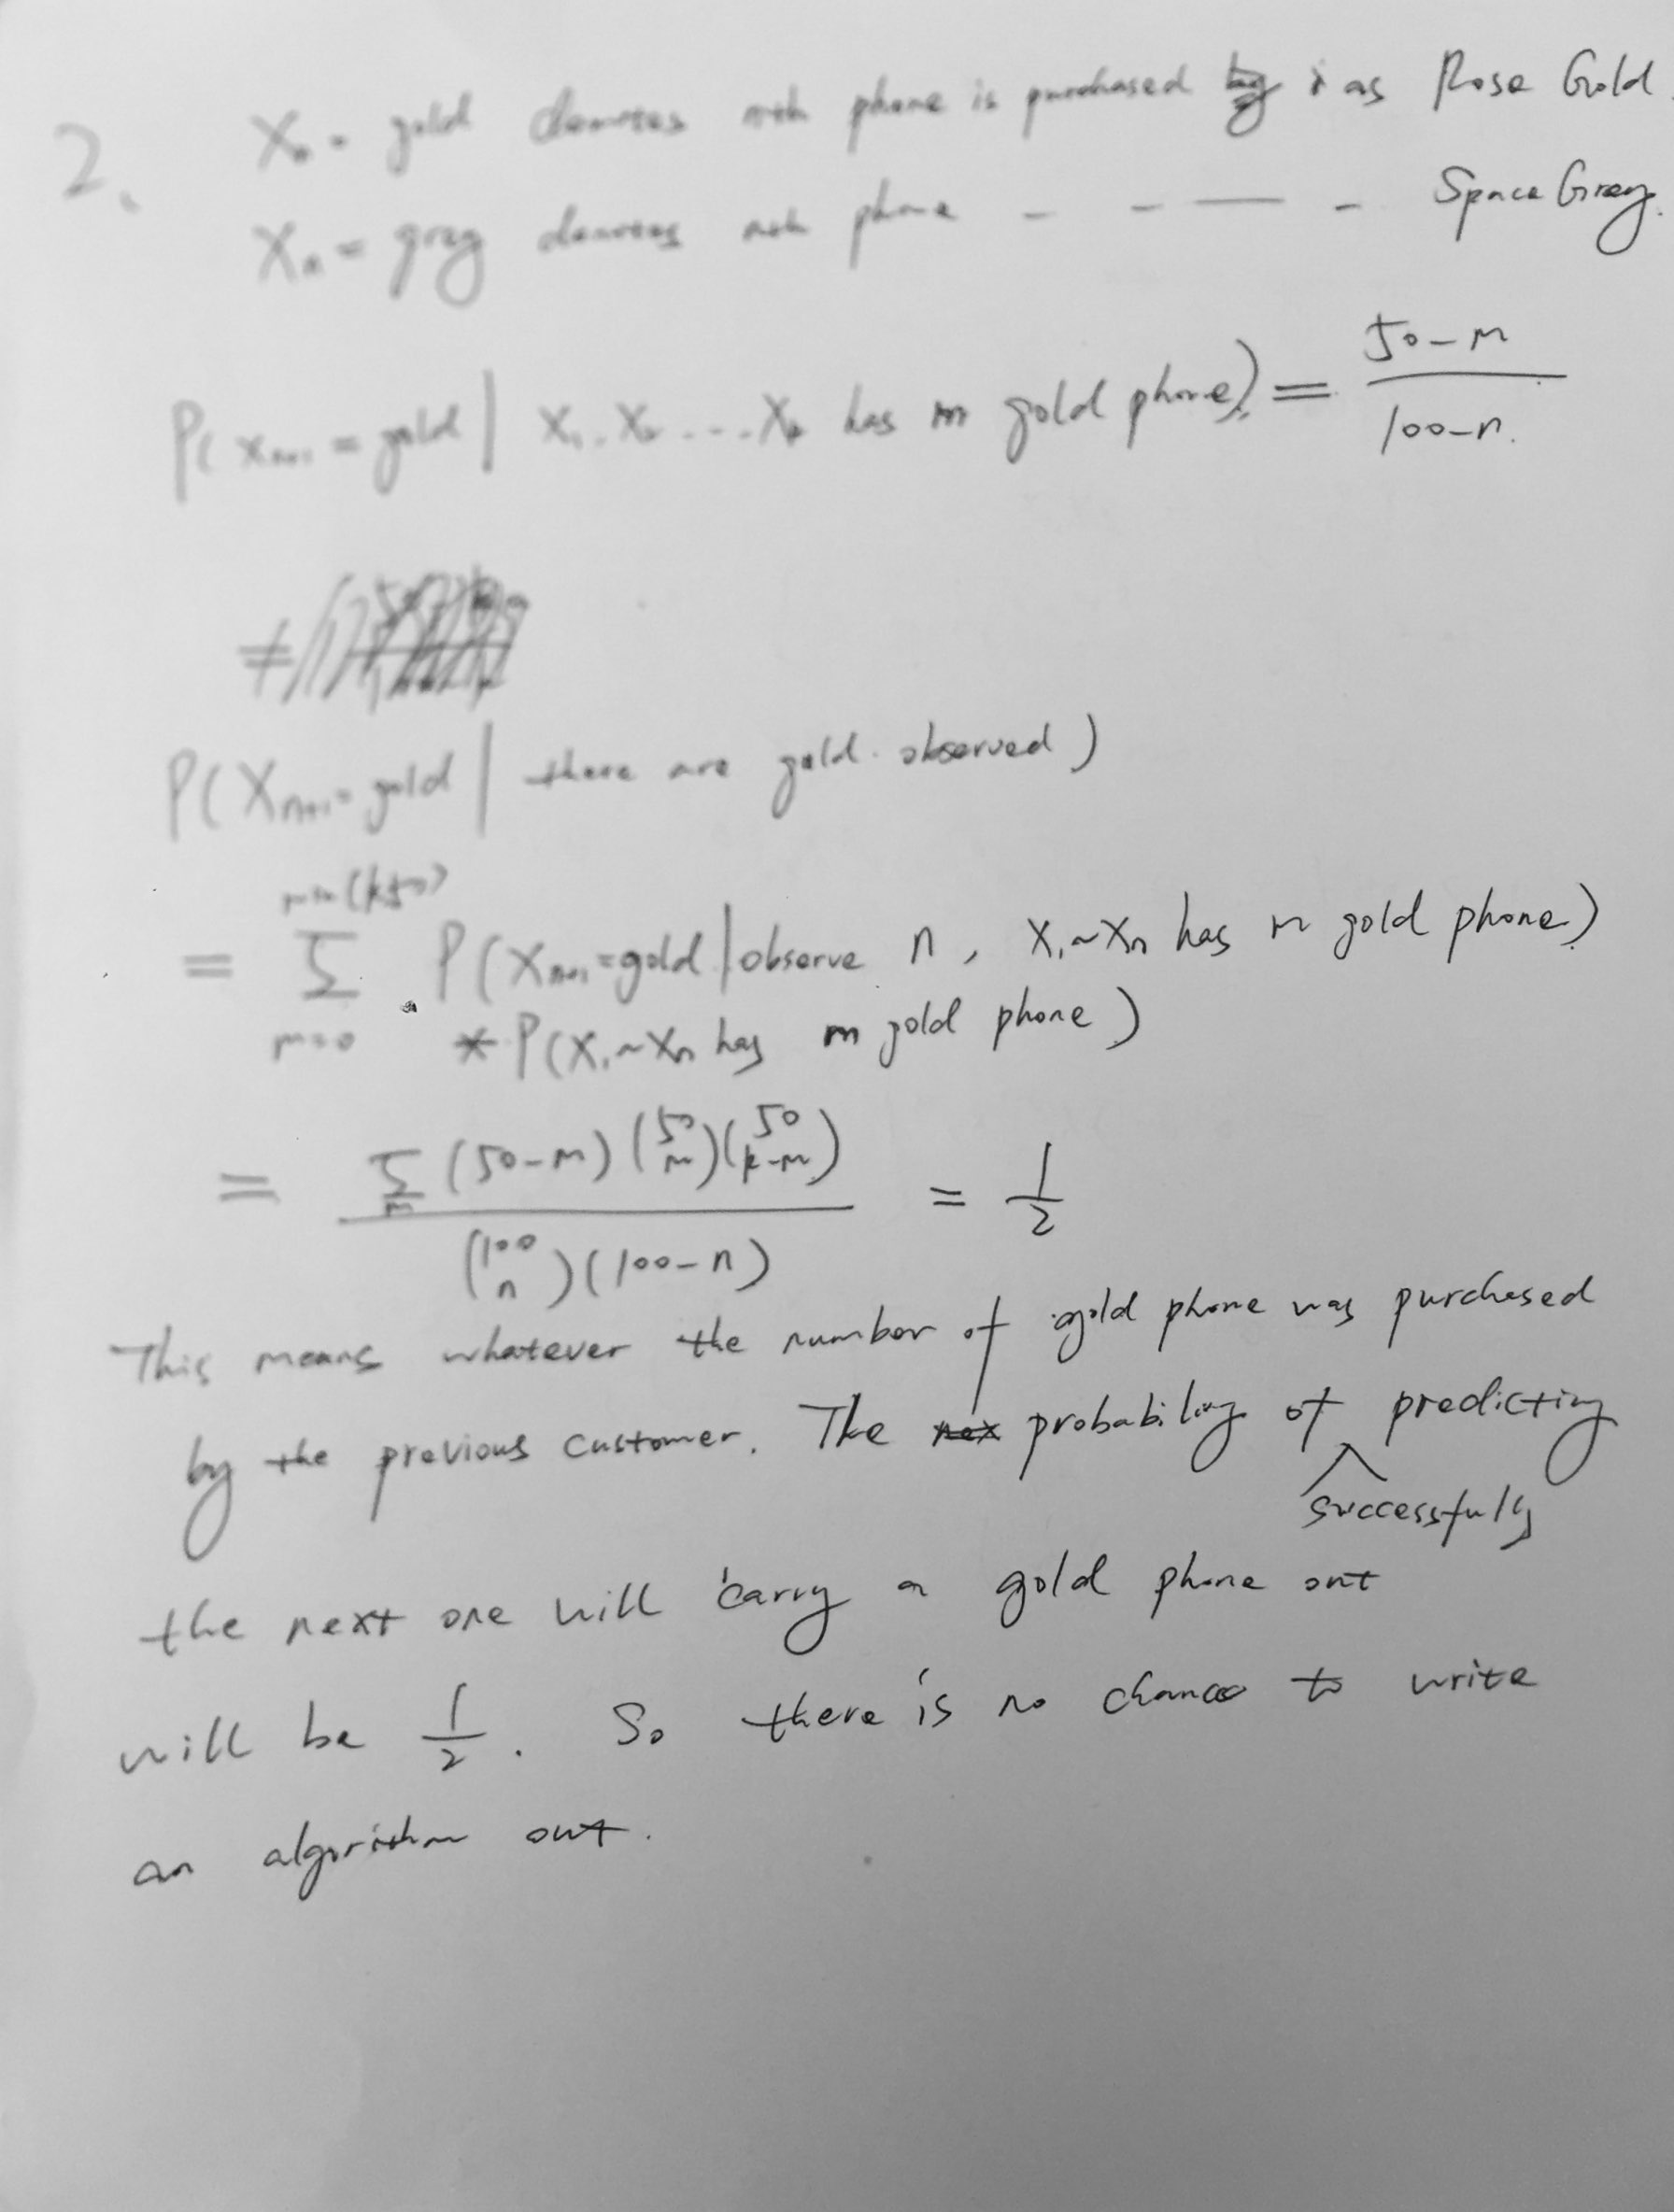 2. Xn = gold denotes nth phone is purchased as Rose Gold.
Xn = gray denotes nth phone - - — - Space Gray.
P( Xn+1 = gold | X1, X2 ... Xn has m gold phone) = (50-m)/(100-n).
P( Xn+1 = gold | there are gold observed )
= Σ_{m=0}^{min(k,50)} P( Xn+1 = gold | observe n , X1~Xn has m gold phone )
* P( X1~Xn has m gold phone )
= Σ_m (50-m) (50 m) (50 k-m) / (100 n) (100-n) = 1/2
This means whatever the number of gold phone was purchased
by the previous customer. The probability of successfully predicting
the next one will carry a gold phone out
will be 1/2. So there is no chance to write
an algorithm out.